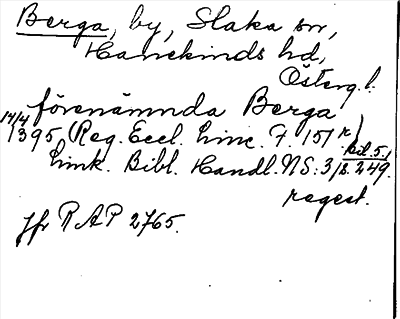 Berga, by, Slaka sn,
Hanekinds hd,
Österg. l.
förenämnda Berga
14/4 1395 (Reg. Eccl. Linc. F. 151 r)
Link. Bibl. Handl. NS: 3, bil. 5, s. 249.
regest.
Jfr RAP 2765.